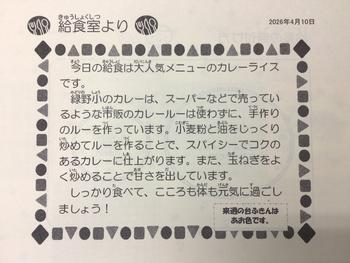 きゅうしょくしつ
給食室より
2026年4月10日
今日の給食は大人気メニューのカレーライス
です。
緑野小のカレーは、スーパーなどで売ってい
るような市販のカレールーは使わずに、手作り
のルーを作っています。小麦粉と油をじっくり
炒めてルーを作ることで、スパイシーでコクの
あるカレーに仕上がります。また、玉ねぎをよ
く炒めることで甘さを出しています。
しっかり食べて、こころも体も元気に過ごし
ましょう！
来週の台ふきんは
あお色です。